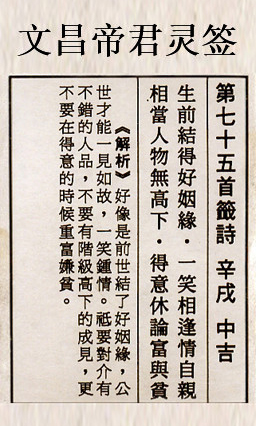 文昌帝君灵签
第七十五首籤詩 辛戌 中吉
生前結得好姻緣．一笑相逢情自親
相當人物無高下．得意休論富與貧
《解析》好像是前世結了好姻緣，公
世才能一見如故，一笑鍾情。祗要對介有
不錯的人品，不要有階級高下的成見，更
不要在得意的時候重富嫌貧。